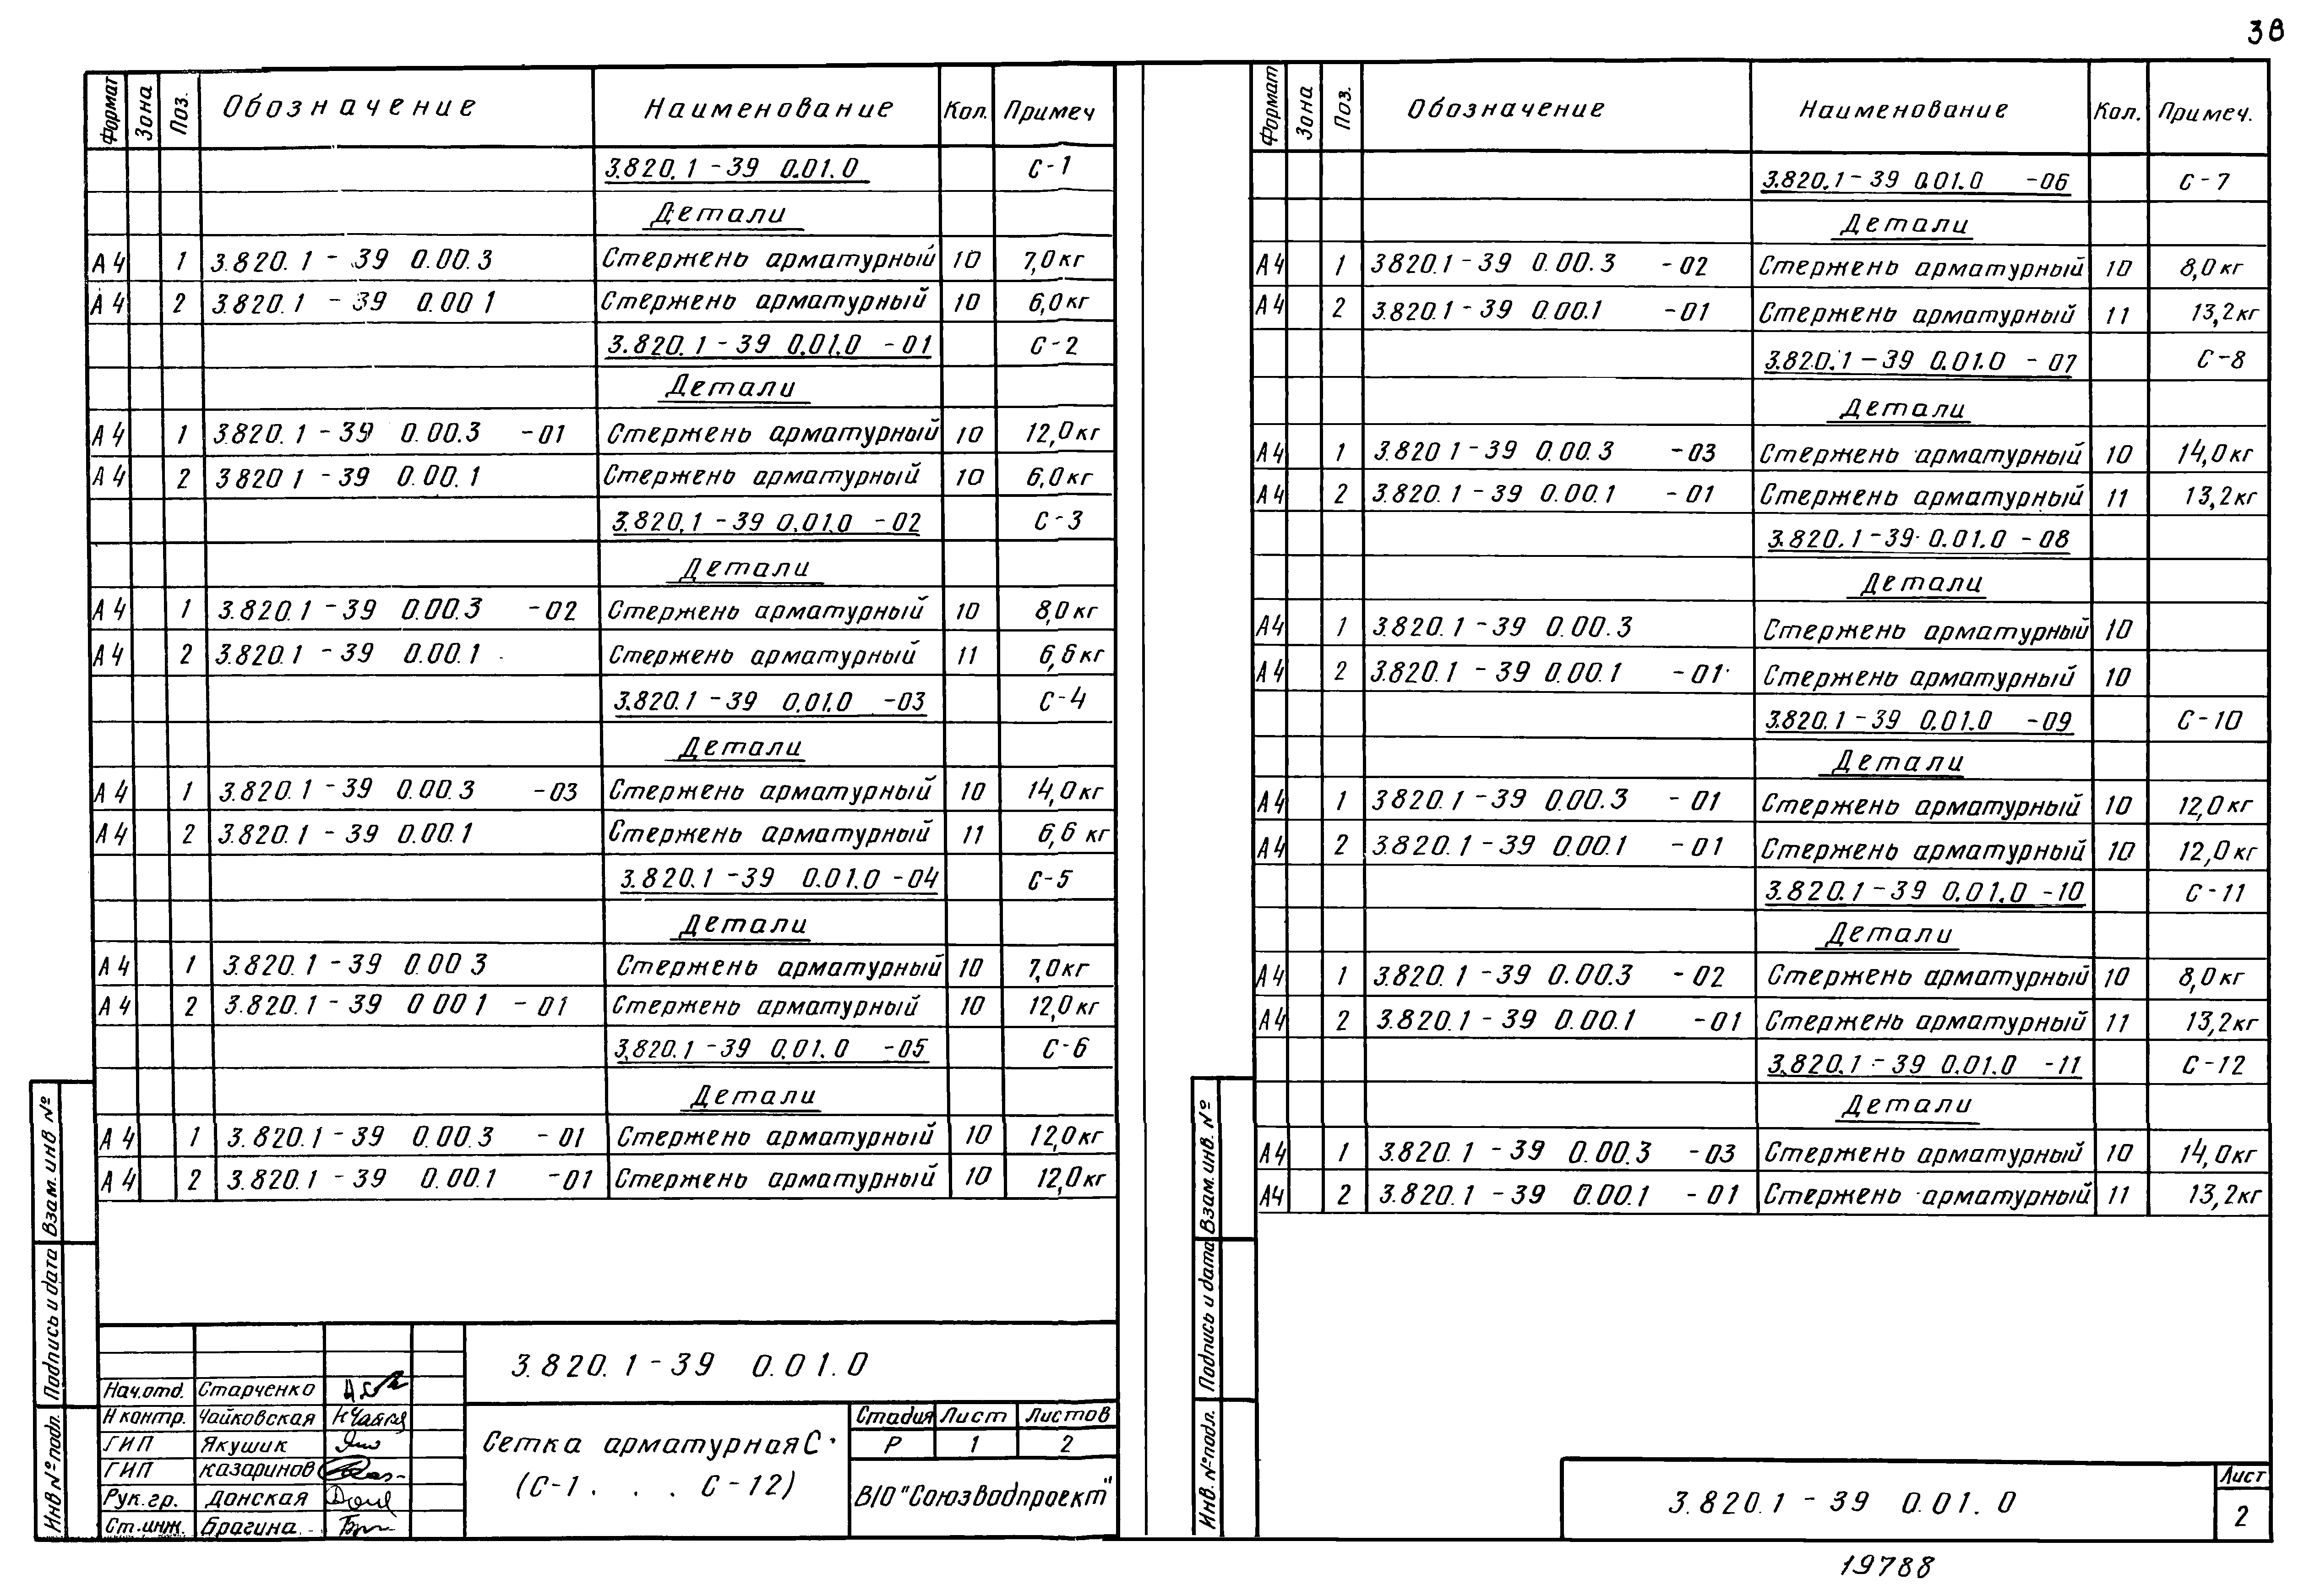 38
Формат Зона Поз. Обозначение Наименование Кол. Примеч
3.820.1-39 0.01.0 С-1
Детали
А4 1 3.820.1-39 0.00.3 Стержень арматурный 10 7,0кг
А4 2 3.820.1-39 0.00 1 Стержень арматурный 10 6,0кг
3.820.1-39 0.01.0 -01 С-2
Детали
А4 1 3.820.1-39 0.00.3 -01 Стержень арматурный 10 12,0кг
А4 2 3.820 1-39 0.00.1 Стержень арматурный 10 6,0кг
3.820.1-39 0.01.0 -02 С-3
Детали
А4 1 3.820.1-39 0.00.3 -02 Стержень арматурный 10 8,0кг
А4 2 3.820.1-39 0.00.1 Стержень арматурный 11 6,6кг
3.820.1-39 0.01.0 -03 С-4
Детали
А4 1 3.820.1-39 0.00.3 -03 Стержень арматурный 10 14,0кг
А4 2 3.820.1-39 0.00.1 Стержень арматурный 11 6,6 кг
3.820.1-39 0.01.0-04 С-5
Детали
А4 1 3.820.1-39 0.00 3 Стержень арматурный 10 7,0кг
А4 2 3.820.1-39 0 00 1 -01 Стержень арматурный 10 12,0кг
3.820.1-39 0.01.0 -05 С-6
Детали
А4 1 3.820.1-39 0.00.3 -01 Стержень арматурный 10 12,0кг
А4 2 3.820.1-39 0.00.1 -01 Стержень арматурный 10 12,0кг
Взам. инв №
Подпись и дата
Инв № подл.
3.820.1-39 0.01.0
Нач.отд. Старченко
Н контр. Чайковская
ГИП Якушик
ГИП Казаринов
Рук.гр. Донская
Ст.инж. Брагина
Сетка арматурная С
(С-1 . . . С-12)
Стадия Лист Листов
Р 1 2
В/О "Союзводпроект"
Формат Зона Поз. Обозначение Наименование Кол. Примеч.
3.820.1-39 0.01.0 -06 С-7
Детали
А4 1 3820.1-39 0.00.3 -02 Стержень арматурный 10 8,0кг
А4 2 3.820.1-39 0.00.1 -01 Стержень арматурный 11 13,2кг
3.820.1-39 0.01.0 -07 С-8
Детали
А4 1 3.820 1-39 0.00.3 -03 Стержень арматурный 10 14,0кг
А4 2 3.820.1-39 0.00.1 -01 Стержень арматурный 11 13,2кг
3.820.1-39 0.01.0 -08
Детали
А4 1 3.820.1-39 0.00.3 Стержень арматурный 10
А4 2 3.820.1-39 0.00.1 -01 Стержень арматурный 10
3.820.1-39 0.01.0 -09 С-10
Детали
А4 1 3.820.1-39 0.00.3 -01 Стержень арматурный 10 12,0кг
А4 2 3.820.1-39 0.00.1 -01 Стержень арматурный 10 12,0кг
3.820.1-39 0.01.0 -10 С-11
Детали
А4 1 3.820.1-39 0.00.3 -02 Стержень арматурный 10 8,0кг
А4 2 3.820.1-39 0.00.1 -01 Стержень арматурный 11 13,2кг
3.820.1-39 0.01.0 -11 С-12
Детали
А4 1 3.820.1-39 0.00.3 -03 Стержень арматурный 10 14,0кг
А4 2 3.820.1-39 0.00.1 -01 Стержень арматурный 11 13,2кг
Взам. инв. №
Подпись и дата
Инв. № подл.
3.820.1-39 0.01.0
Лист
2
19788